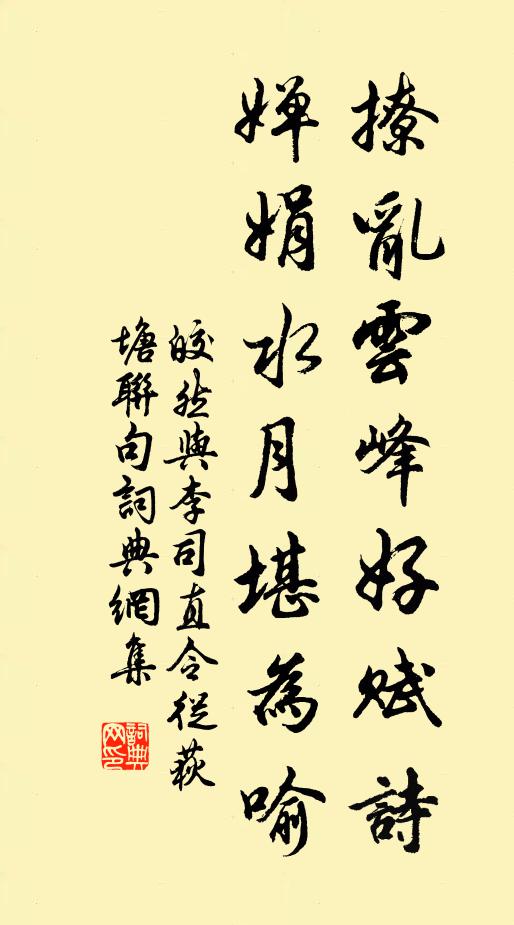 撩亂雲峰好賦詩
嬋娟水月堪為喻
皎然與李司直令從荻
塘聯句詞典網集
詞典
网印